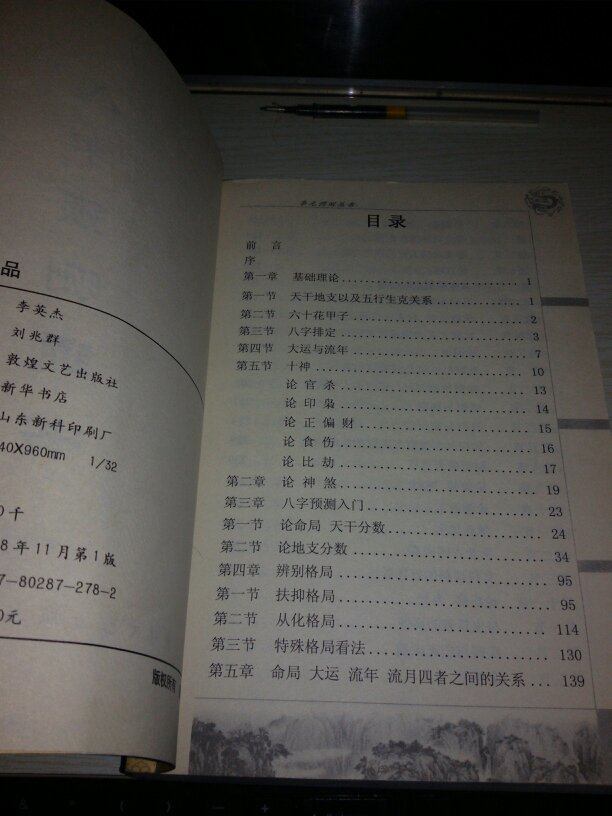 品
李英杰
刘兆群
敦煌文艺出版社
新华书店
山东新科印刷厂
40X960mm 1/32
0千
8年11月第1版
7-80287-278-2
0元
版权所有
目录
前 言
序
第一章 基础理论 1
第一节 天干地支以及五行生克关系 1
第二节 六十花甲子 2
第三节 八字排定 3
第四节 大运与流年 7
第五节 十神 10
论官杀 13
论印枭 14
论正偏财 15
论食伤 16
论比劫 17
第二章 论神煞 19
第三章 八字预测入门 23
第一节 论命局 天干分数 24
第二节 论地支分数 34
第四章 辨别格局 95
第一节 扶抑格局 95
第二节 从化格局 114
第三节 特殊格局看法 130
第五章 命局 大运 流年 流月四者之间的关系 139